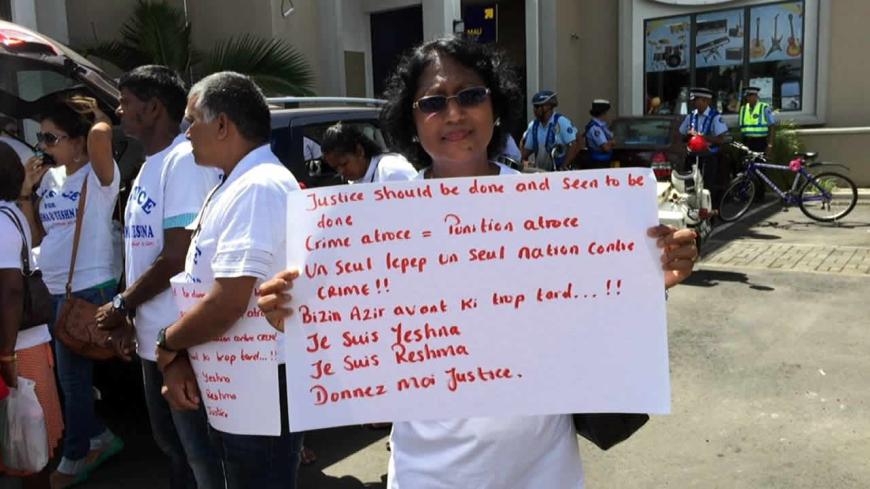 Justice should be done and seen to be
done
Crime atroce = Punition atroce
Un seul lepep un seul nation contre
CRIME!!
Bizin Azir avant ki trop tard...!!
Je Suis Yeshna
Je Suis Reshma
Donnez moi Justice.
contre CRIME
ki trop tard...!!
Yeshna
Reshma
Justice
MAU